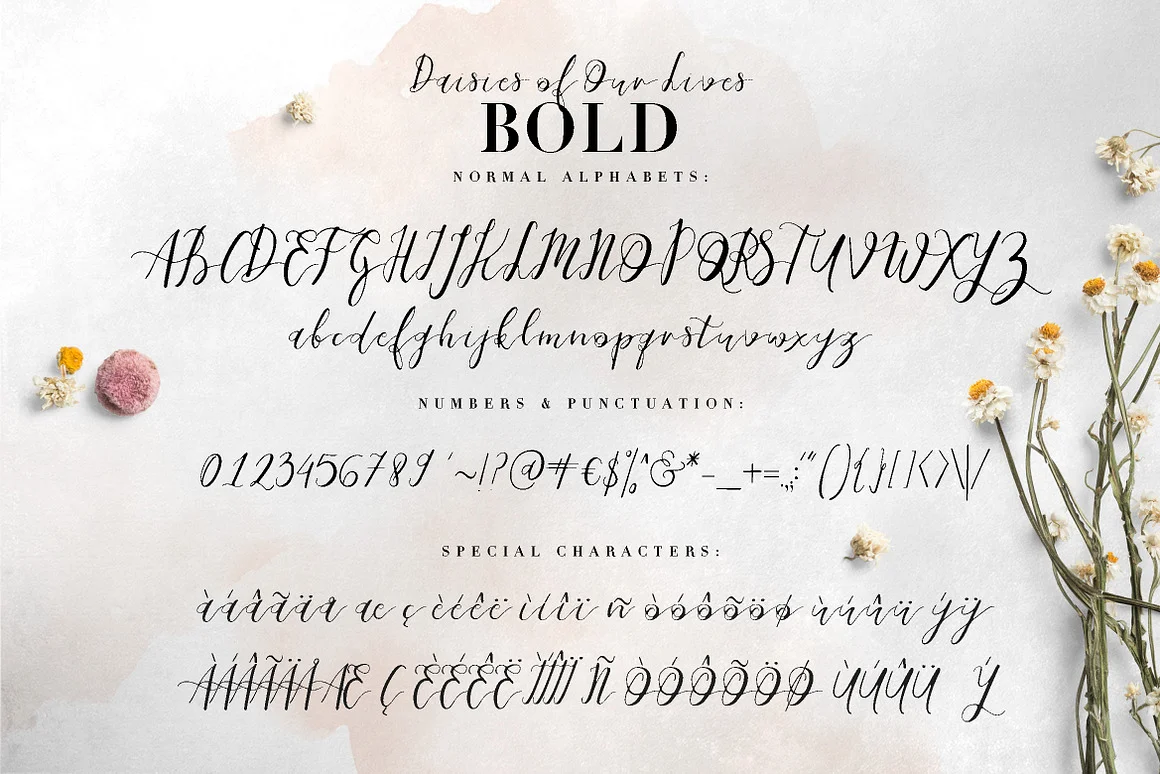 Daisies of Our Lives
BOLD
NORMAL ALPHABETS:
ABCDEFGHIJKLMNOPQRSTUVWXYZ
abcdefghijklmnopqrstuvwxyz
NUMBERS & PUNCTUATION:
0123456789 ‘~!?@#€$%^&*-_+=.,;:'"(){}[]<>\|/
SPECIAL CHARACTERS:
àáâãäå æ ç èéêë ìíîï ñ òóôõöø ùúûü ýÿ
ÀÁÂÃÄÅÆ Ç ÈÉÊË ÌÍÎÏ Ñ ÒÓÔÕÖØ ÙÚÛÜ Ý